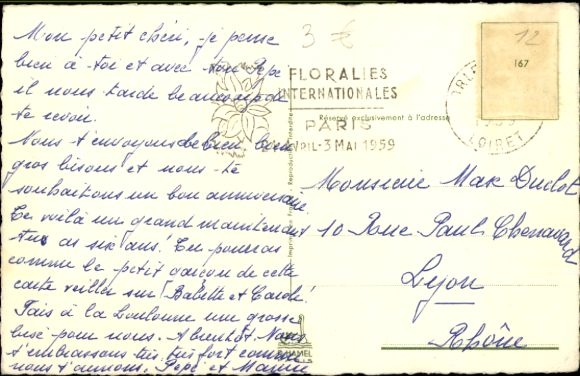 Mon petit chéri, je pense
bien à toi et avec ton Pépé
il nous tarde beaucoup de
te revoir.
Nous t'envoyons de bien bien
gros bisous et nous te
souhaitons un bon anniversaire
Te voilà un grand maintenant
tu as six ans! Tu pourras
comme le petit garçon de cette
carte veiller sur Babette et Carole!
Fais à la Louloune une grosse
bise pour nous. A bientôt. Nous
t'embrassons très très fort comme
nous t'aimons. Pépé et Mamie
3 €
FLORALIES
INTERNATIONALES
PARIS
-3 MAI 1959
Réservé exclusivement à l'adresse
12
167
LOIRET
Monsieur Max Duclot
10 Rue Paul Chenavard
Lyon
Rhône